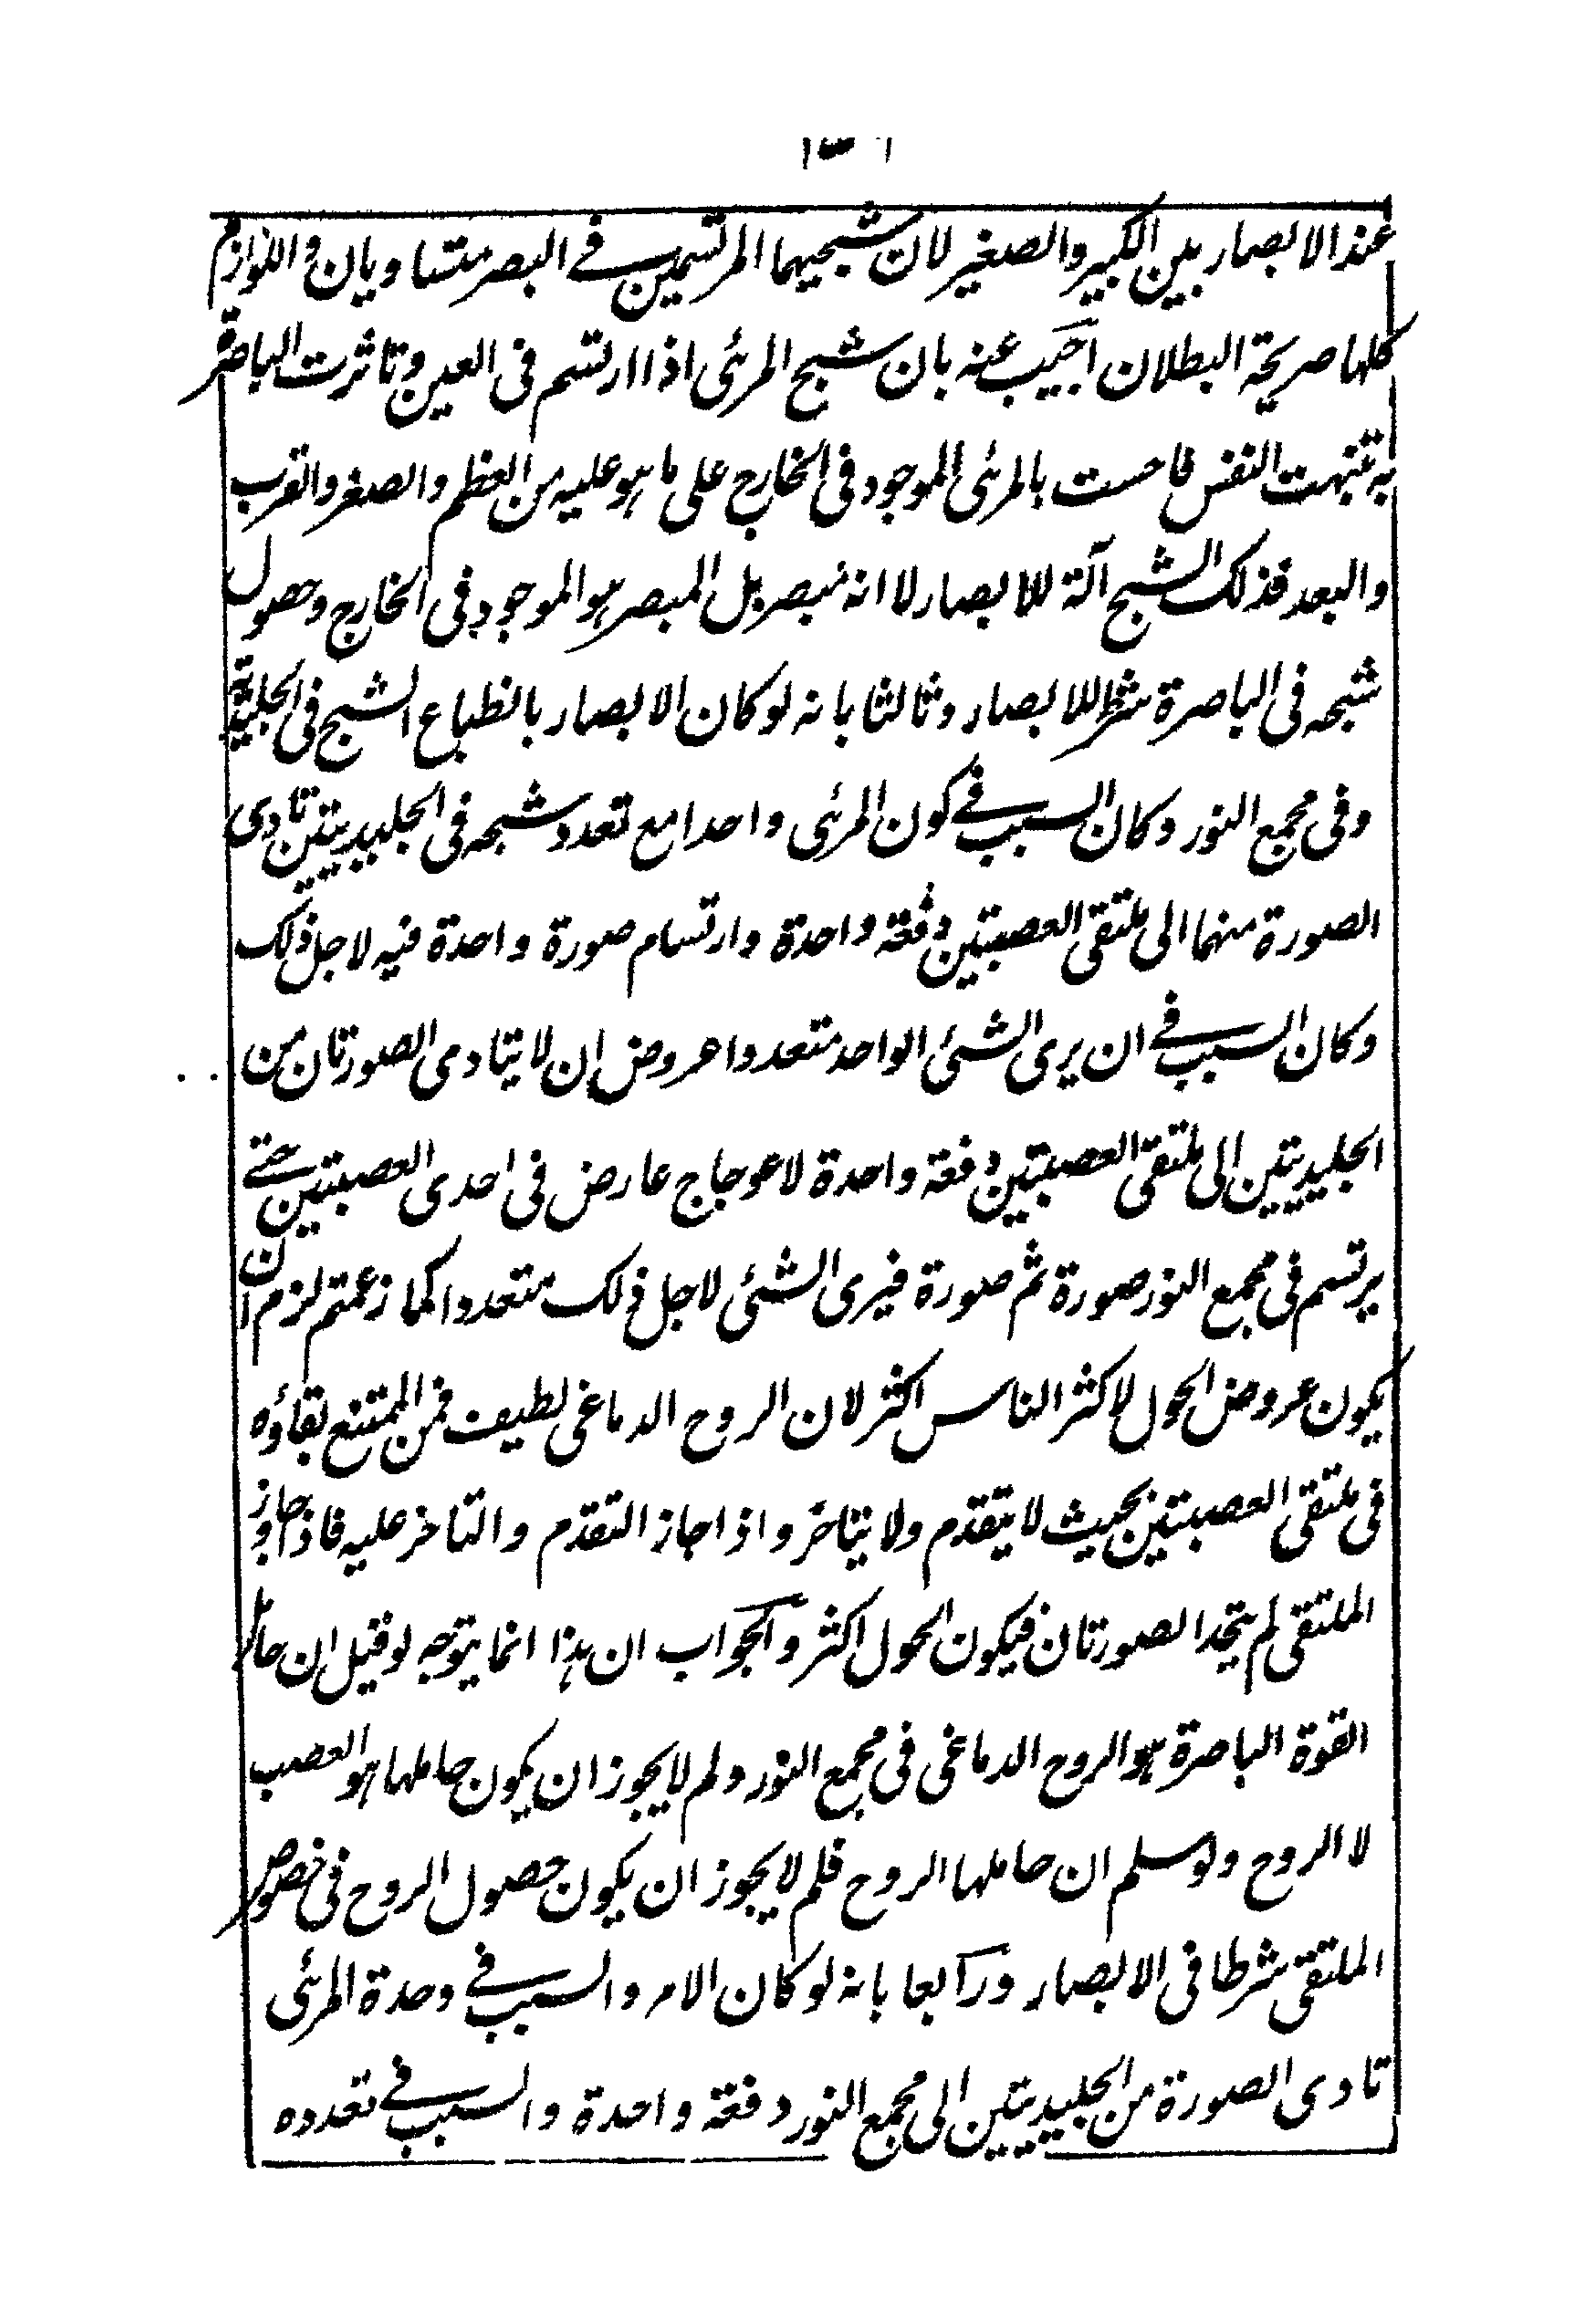 عند الابصار بين الكبير والصغير لان شبحيهما المرتسمين فى البصر متساويان واللوازم
كلها صريحة البطلان اجيب عنه بان شبح المرئى اذا ارتسم فى العين وتاثرت الباصرة
به تنبهت النفس فاحست بالمرئى الموجود فى الخارج على ما هو عليه من العظم والصغر والقرب
والبعد فذلك الشبح آلة للابصار لا انه مبصر بل المبصر هو الموجود فى الخارج وحصول
شبحه فى الباصرة شرط للابصار وثالثا بانه لو كان الابصار بانطباع الشبح فى الجليدية
وفى مجمع النور وكان السبب فى كون المرئى واحدا مع تعدد شبحه فى الجليديتين تادى
الصورة منهما الى ملتقى العصبتين دفعة واحدة وارتسام صورة واحدة فيه لاجل ذلك
وكان السبب فى ان يرى الشئ الواحد متعددا عروض ان لا يتادى الصورتان من
الجليديتين الى ملتقى العصبتين دفعة واحدة لاعوجاج عارض فى احدى العصبتين حتى
يرتسم فى مجمع النور صورة ثم صورة فيرى الشئ لاجل ذلك متعددا كما زعمتم لزم ان
يكون عروض الحول لاكثر الناس اكثر لان الروح الدماغى لطيف فمن الممتنع بقاؤه
فى ملتقى العصبتين بحيث لا يتقدم ولا يتاخر واذا جاز التقدم والتاخر عليه فاذا جاوز
الملتقى لم يتحد الصورتان فيكون الحول اكثر والجواب ان هذا انما يتوجه لو قيل ان حامل
القوة الباصرة هو الروح الدماغى فى مجمع النور ولم لا يجوز ان يكون حاملها هو العصب
لا الروح ولو سلم ان حاملها الروح فلم لا يجوز ان يكون حصول الروح فى خصوص
الملتقى شرطا فى الابصار ورابعا بانه لو كان الامر والسبب فى وحدة المرئى
تادى الصورة من الجليديتين الى مجمع النور دفعة واحدة والسبب فى تعدده